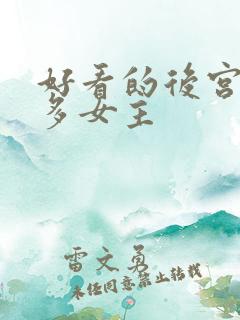 好看的後宮
多女主
雷文勇
未任同意禁止轉載